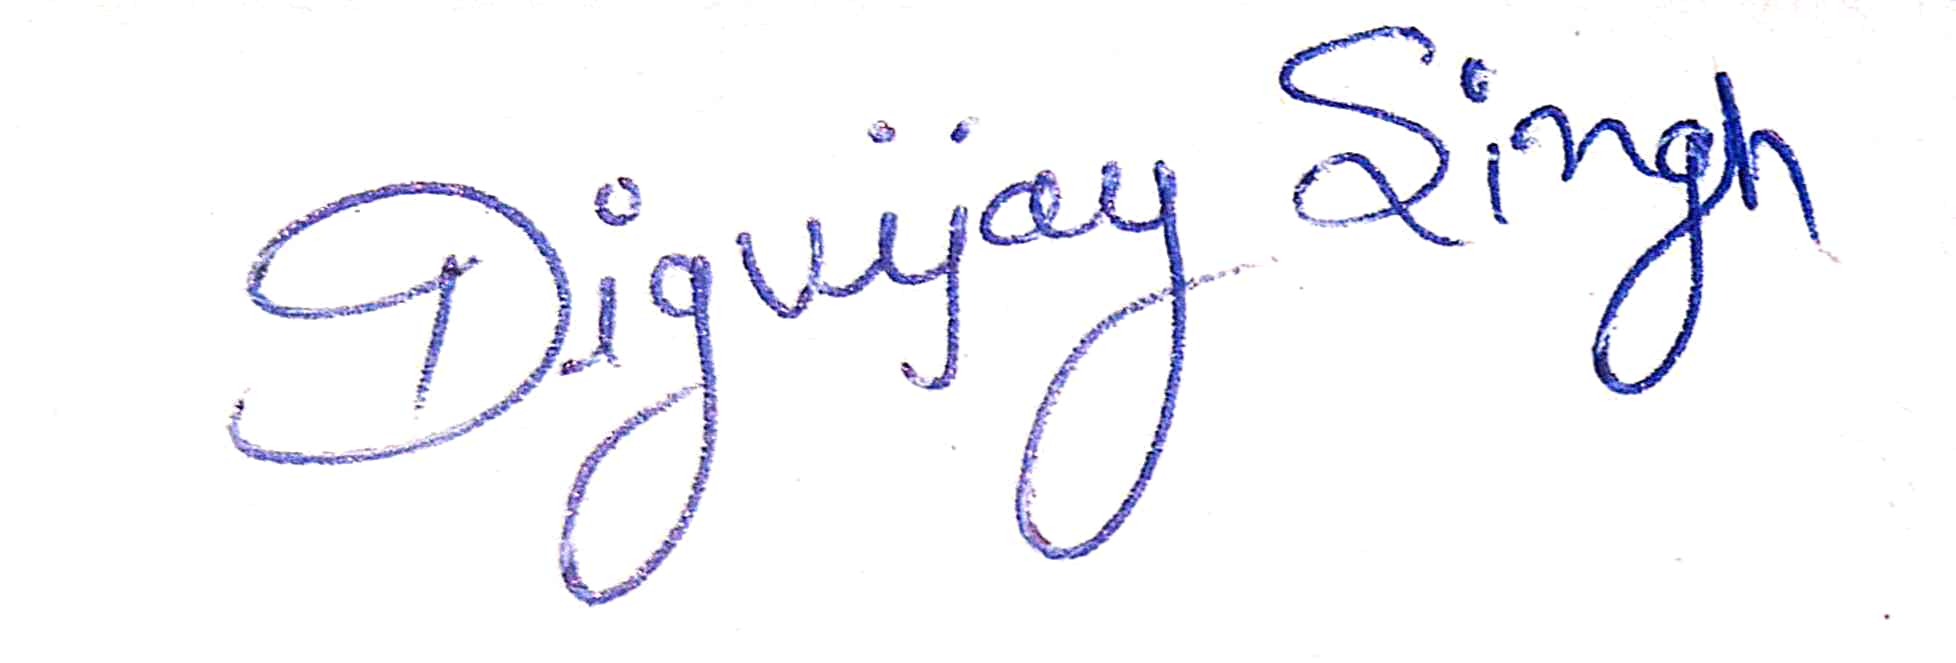 Digvijay Singh